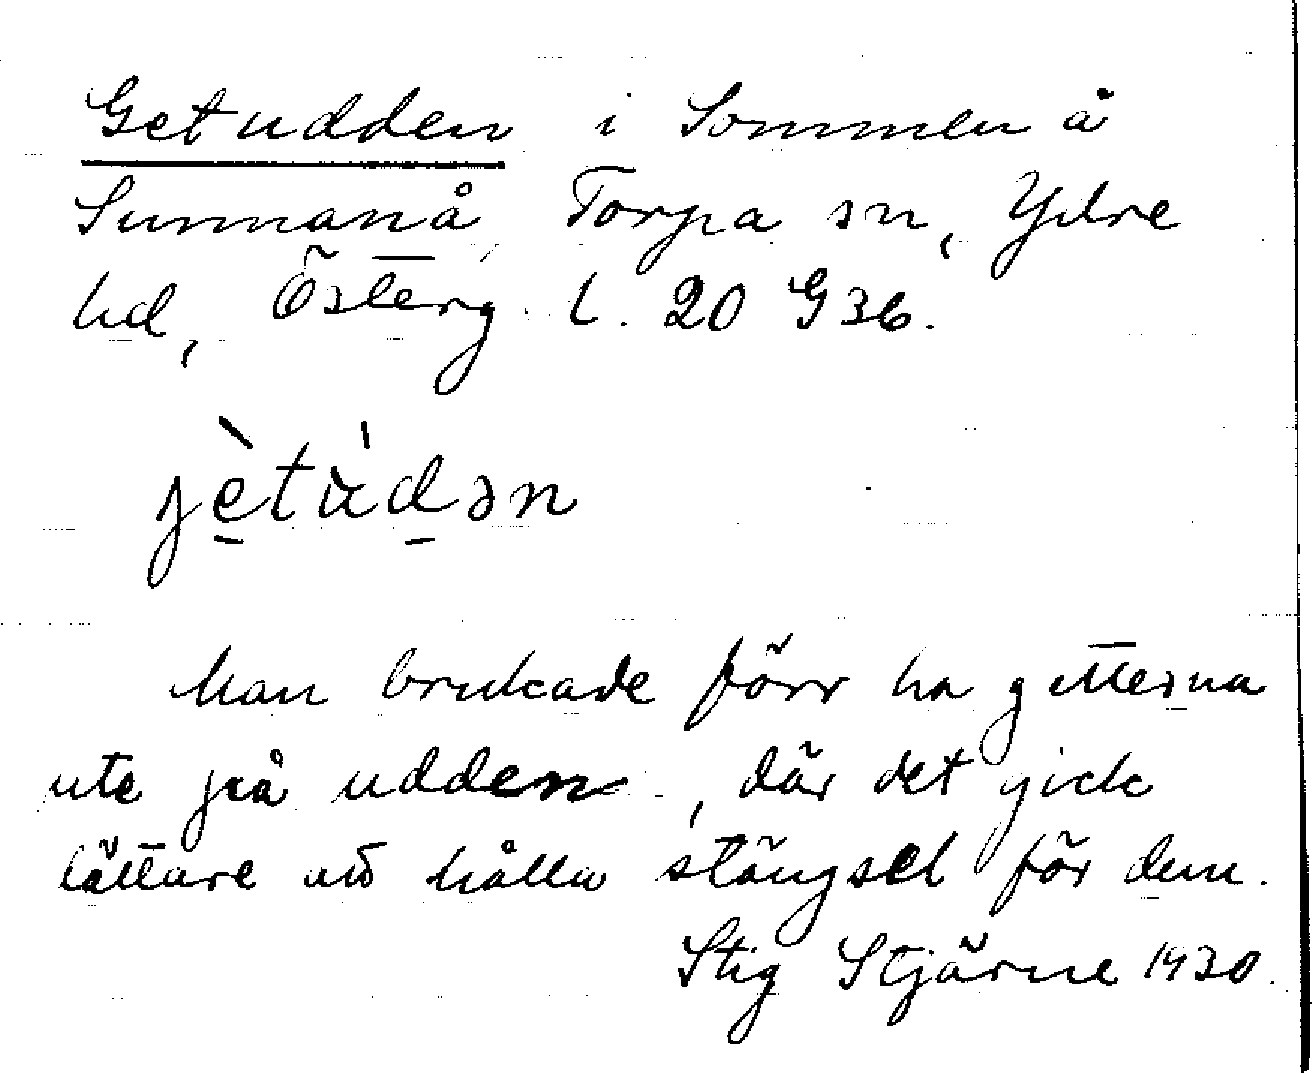 Getudden i Sommen å
Sunnanå, Torpa sn, Ydre
hd, Österg. l. 20 G 36.
jètùdən
Man brukade förr ha getterna
ute på udden, där det gick
lättare att hålla stängsel för dem.
Stig Stjärne 1930.